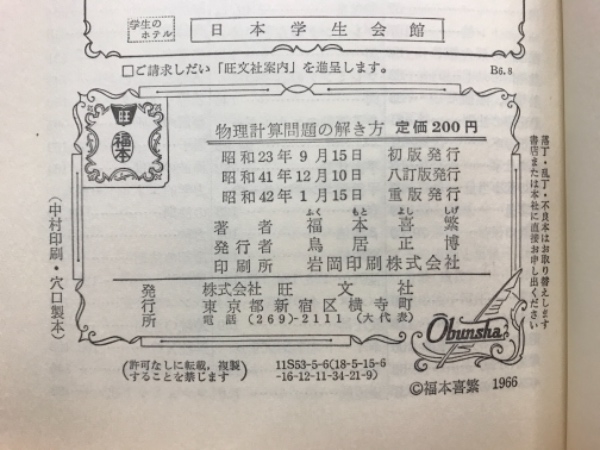 学生の
ホテル
日本学生会館
□ご請求しだい「旺文社案内」を進呈します。
B6.8
旺
福本
物理計算問題の解き方 定価200円
昭和23年9月15日 初版発行
昭和41年12月10日 八訂版発行
昭和42年1月15日 重版発行
ふく もと よし しげ
著者 福本喜繁
発行者 鳥居正博
印刷所 岩岡印刷株式会社
発行所
株式会社 旺文社
東京都新宿区横寺町
電話 (269)-2111 (大代表)
Obunsha
落丁・乱丁・不良本はお取り替えします
書店または本社に直接お申し出ください
(中村印刷・穴口製本)
(許可なしに転載,複製
することを禁じます)
11S53-5-6(18-5-15-6
-16-12-11-34-21-9)
©福本喜繁 1966